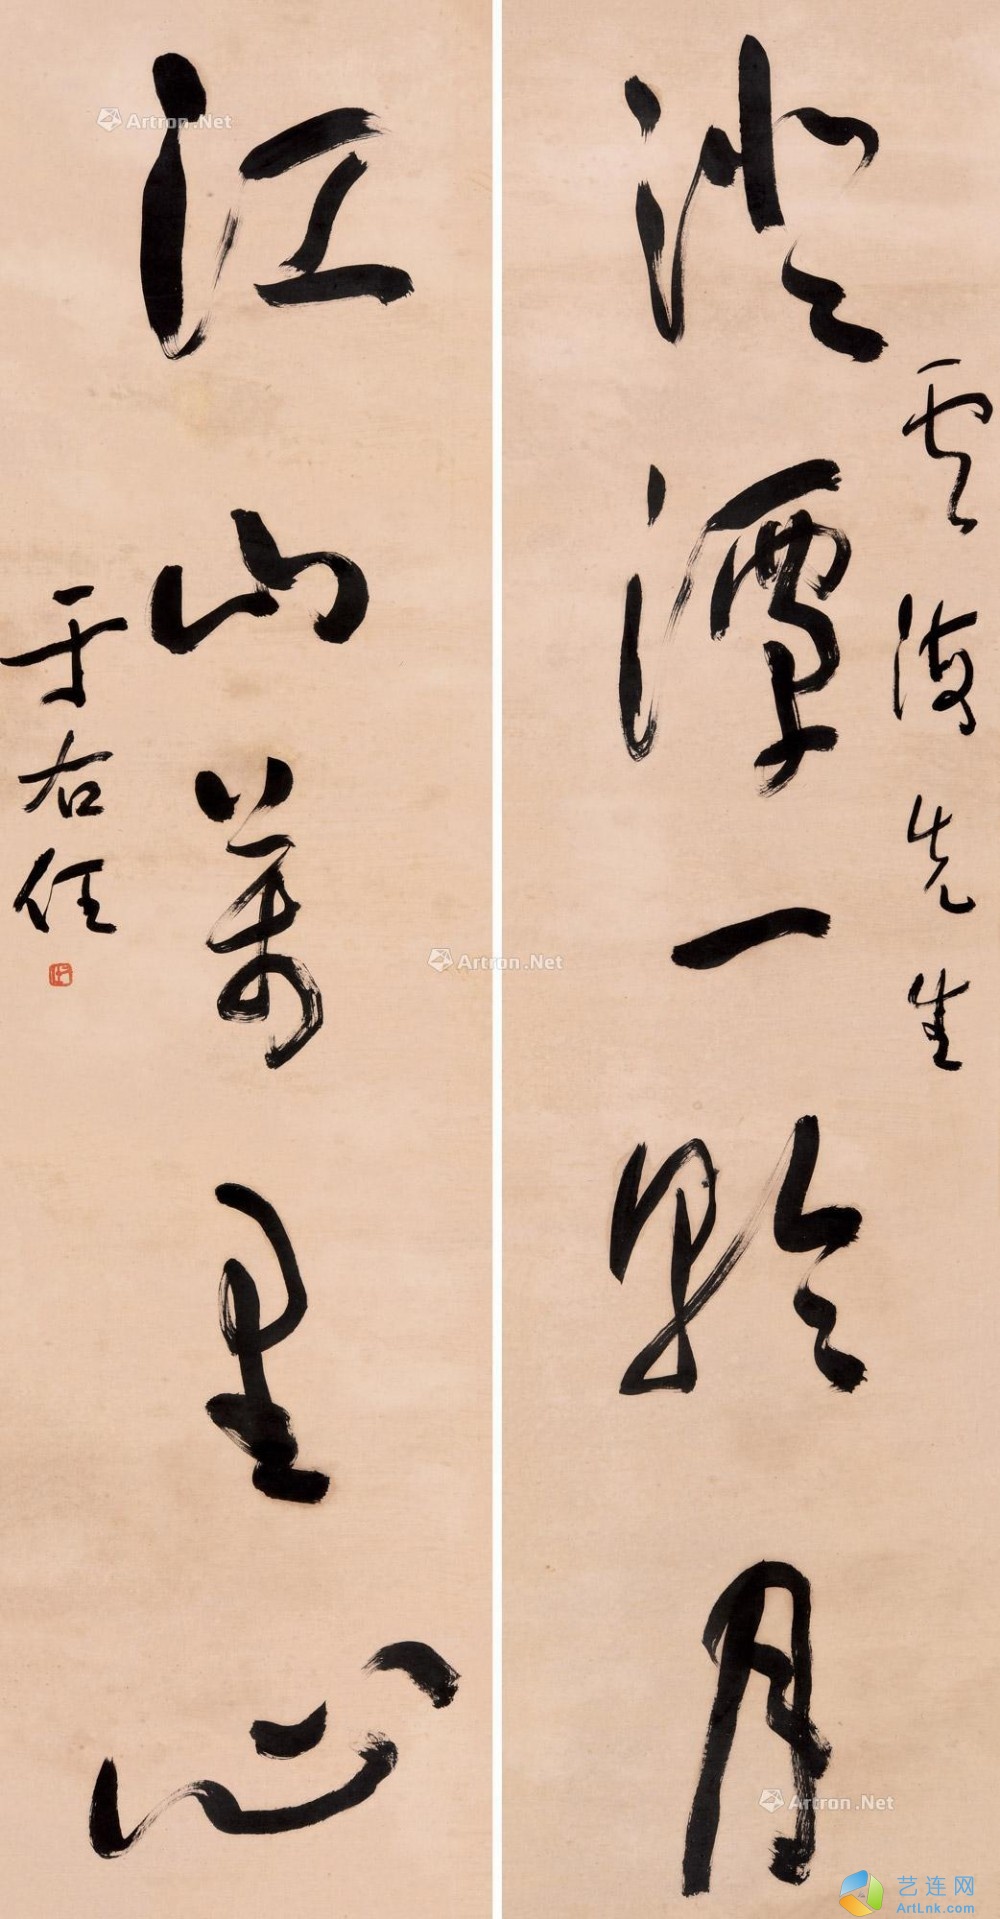 澄潭一輪月
雲海先生
江山萬里心
于右任
Artron.Net
Artron.Net
Artron.Net
艺连网
ArtLnk.com